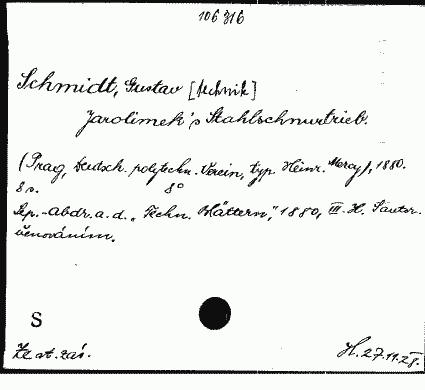 106316
Schmidt, Gustav [technik]
Jarolimek's Stahlschnurtrieb.
(Prag, Deutsch. polytechn. Verein, typ. Heinr. Mercy), 1880.
8 s. 8°
Sep.-Abdr. a. d. „Techn. Blättern", 1880, III. H. S autor.
věnováním.
S
Ze st. zás. H. 27.11.28.